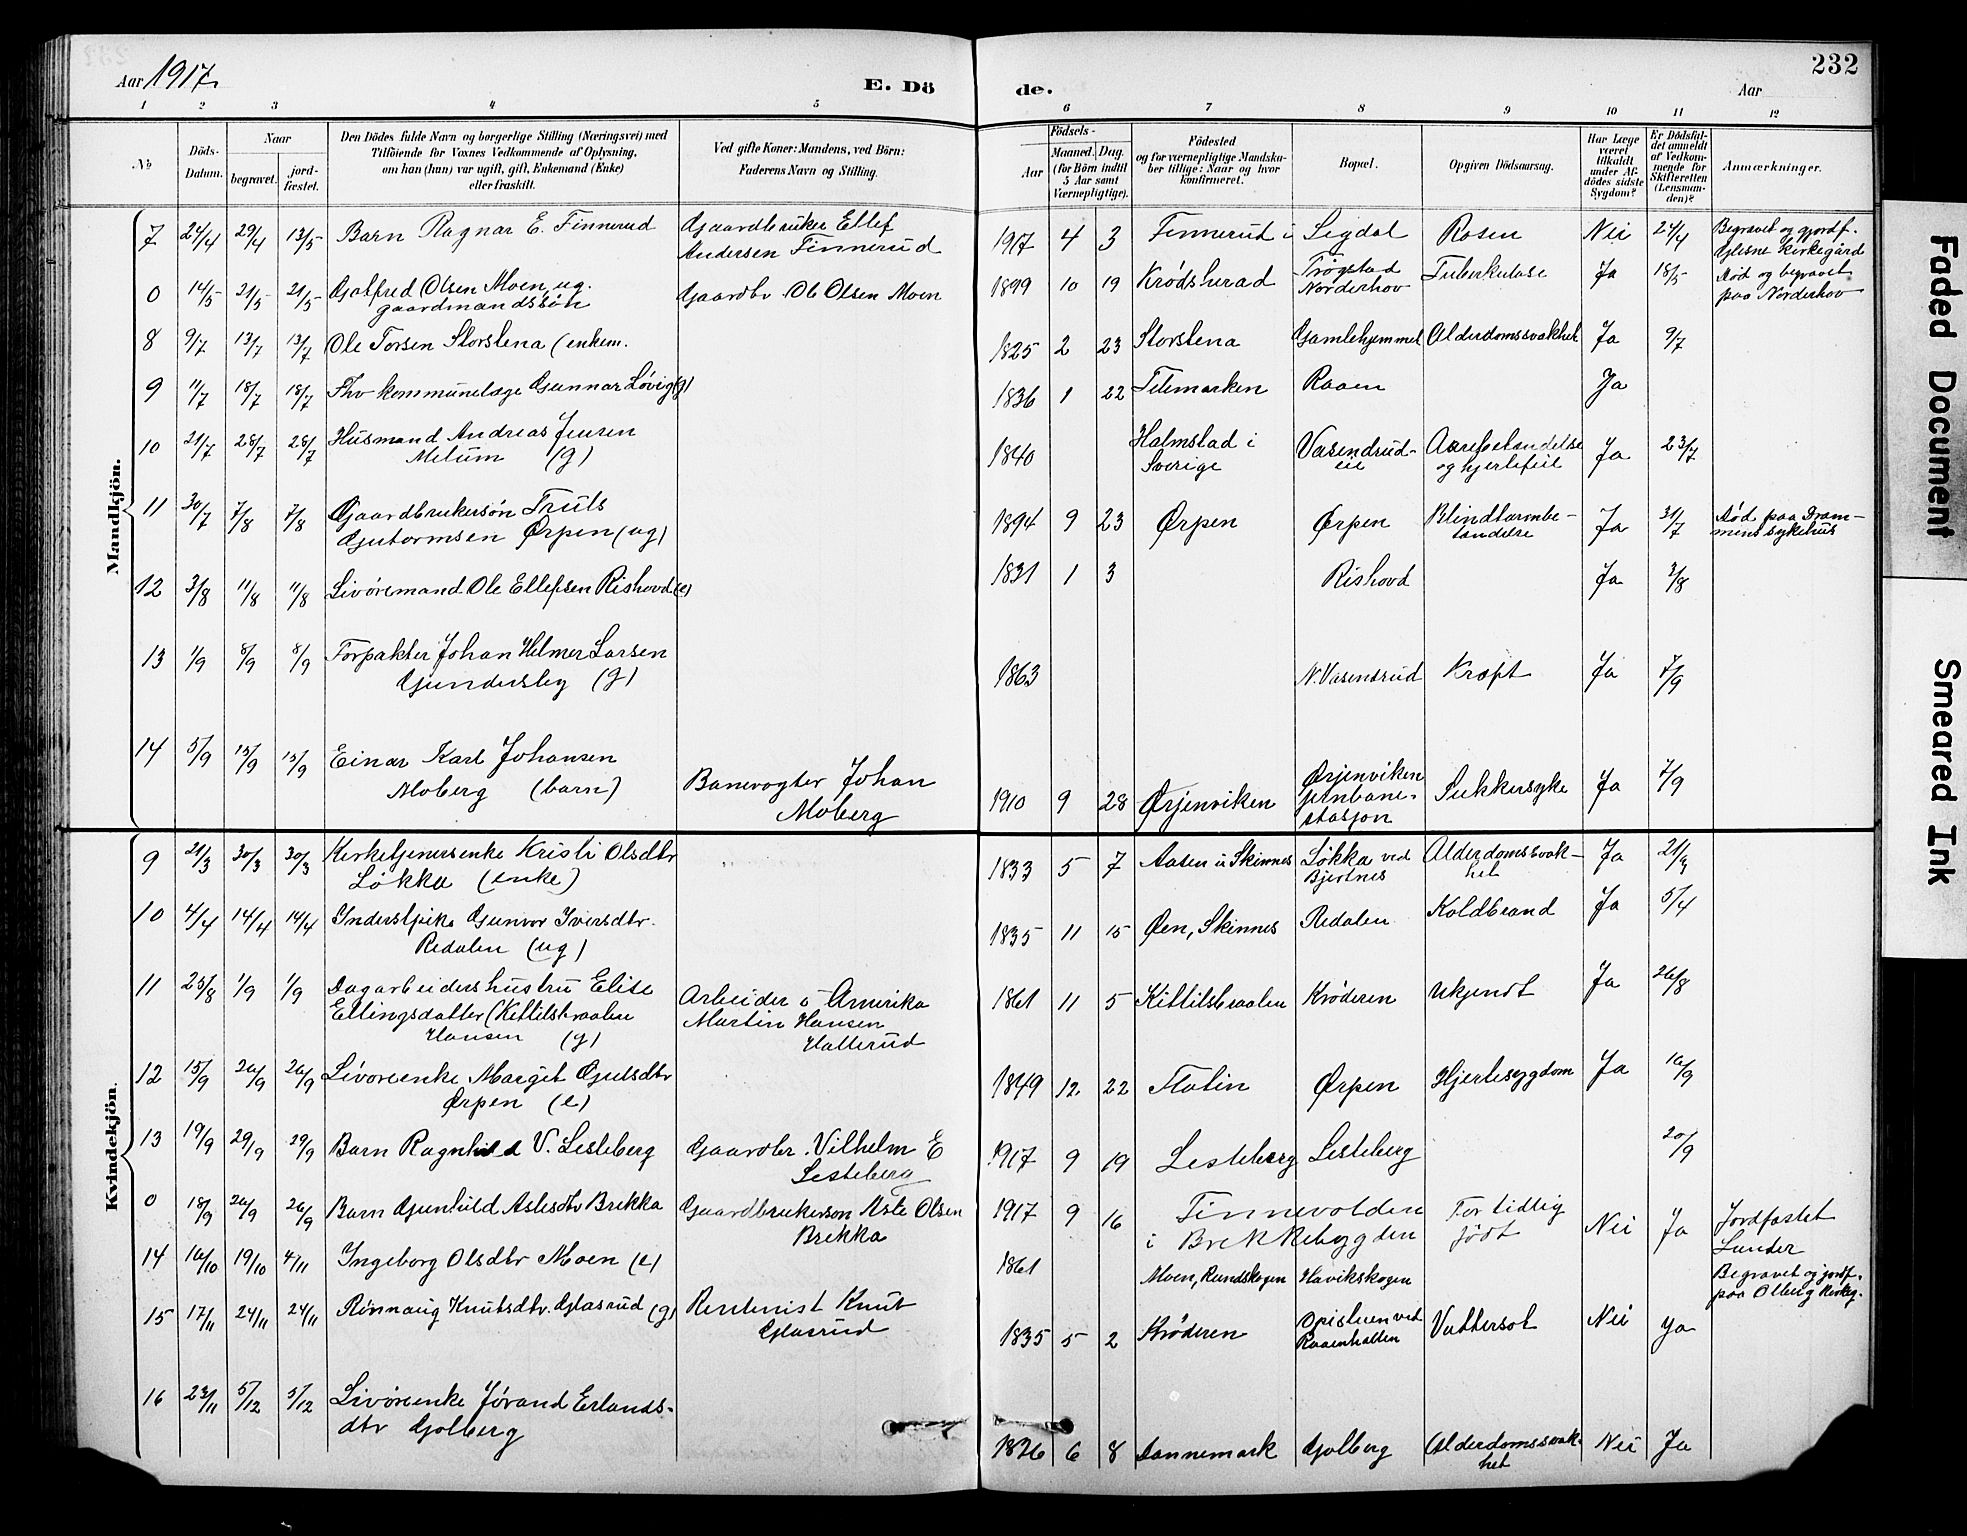 Aar 1917.
E. Dö
de.
Aar
232
1 2 3 4 5 6 7 8 9 10 11 12
No
Döds-Datum.
Naar
begravet.
jord-fæstet.
Den Dödes fulde Navn og borgerlige Stilling (Næringsvei) med
Tilföiende for Voxnes Vedkommende af Oplysning,
om han (hun) var ugift, gift, Enkemand (Enke)
eller fraskilt.
Ved gifte Koner: Mandens, ved Börn:
Faderens Navn og Stilling.
Födsels-
Aar
Maaned. Dag.
(for Börn indtil
5 Aar samt
Værnepligtige).
Födested
og for værnepligtige Mandska-
ber tillige: Naar og hvor
konfirmeret.
Bopæl.
Opgiven Dödsaarsag.
Har Læge
været
tilkaldt
under Af-
dödes sidste
Sygdom?
Er Dödsfal-
det anmeldt
af Vedkom-
mende for
Skifteretten
(Lensman-
den)?
Anmærkninger.
Mandkjön.
7 24/4 29/4 13/5 Barn Ragnar E. Finnerud Gaardbruker Ellef
Andersen Finnerud
1917 4 3 Finnerud i Sigdal Rosen Nei 24/4 Begravet og gjordf.
Glesne Kirkegård
0 14/5 21/5 21/5 Gotfred Olsen Moen, ug.
gaardmandssøn
Gaardbr. Ole Olsen Moen
1899 10 19 Krødsherad Trøgstad
Norderhov
Tuberkulose Ja 18/5 Død og begravet
paa Norderhov
8 9/7 13/7 13/7 Ole Torsen Storslena (enkem.
1825 2 23 Storslena Gamlehjemmet Alderdomssvakhet Ja 9/7
9 11/7 18/7 18/7 Fhv kommunelæge Gunnar Løvig (g)
1836 1 22 Telemarken Raaen Ja
10 21/7 28/7 28/7 Husmand Andreas Jensen
Melum (g)
1840 Halmstad i
Sverige
Vasendrud-
eie
Aarebetændelse
og hjertefeil
Ja 23/7
11 30/7 7/8 7/8 Gaardbrukersøn Truls
Gutormsen Ørpen (ug)
1894 9 23 Ørpen Ørpen Blindtarmbe-
tændelse
Ja 31/7 Død paa Dram-
mens sykehus
12 3/8 11/8 11/8 Livøremand Ole Ellefsen Rishovd (e)
1831 1 3 Rishovd Ja 3/8
13 1/9 8/9 8/9 Forpakter Johan Helmer Larsen
Gundersby (g)
1863 N. Vasendrud Kræft Ja 7/9
14 5/9 15/9 15/9 Einar Karl Johansen
Moberg (barn)
Banevogter Johan
Moberg
1910 9 28 Ørjenviken Ørjenviken
jernbane-
stasjon
Sukkersyke Ja 7/9
Kvindekjön.
9 21/3 30/3 30/3 Kirketjenersenke Kristi Olsdtr
Løkka (enke)
1833 5 7 Aasen i Skinnes Løkka ved
Bjertnes
Alderdomssvak-
het
Ja 21/3
10 4/4 14/4 14/4 Inderstpike Gunvor Iversdtr.
Redalen (ug)
1835 11 15 Øen, Skinnes Redalen Koldbrand Ja 5/4
11 25/8 1/9 1/9 Dagarbeidershustru Elise
Ellingsdatter (Kittilsbraaten
Hansen (g)
Arbeider i Amerika
Martin Hansen
Hallerud
1861 11 5 Kittilsbraaten Krøderen Ukjendt Ja 26/8
12 15/9 26/9 26/9 Livøreenke Margit Gulsdtr
Ørpen (e)
1849 12 22 Flatin Ørpen Hjertesygdom Ja 16/9
13 19/9 29/9 29/9 Barn Ragnhild V. Lesteberg Gaardbr. Vilhelm E
Lesteberg
1917 9 19 Lesteberg Lesteberg 20/9
0 18/9 26/9 26/9 Barn Gunhild Aslesdtr Brekka Gaardbrukersøn Asle Olsen
Brekka
1917 9 16 Finnevolden
i Brekkebygden
For tidlig
født
Nei Ja Jordfæstet
Lunder
14 10/10 19/10 4/11 Ingeborg Olsdtr Moen (e)
1861 Moen, Rundskogen Havikskogen Begravet og jordf.
paa Olberg Kirkeg.
15 17/11 24/11 24/11 Rønnaug Knutsdtr. Glasrud (g) Rentenist Knut
Glasrud
1835 5 2 Krøderen Opistuen ved
Raaenhalten
Vattersot Nei Ja
16 23/11 5/12 5/12 Livøreenke Jørand Erlands-
dtr Golberg
1826 6 8 Dannemark Golberg Alderdomssvak-
het
Nei Ja
Faded Document
Smeared Ink